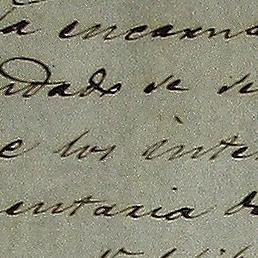 la encarna
ndado se se
e los inte
entaria de